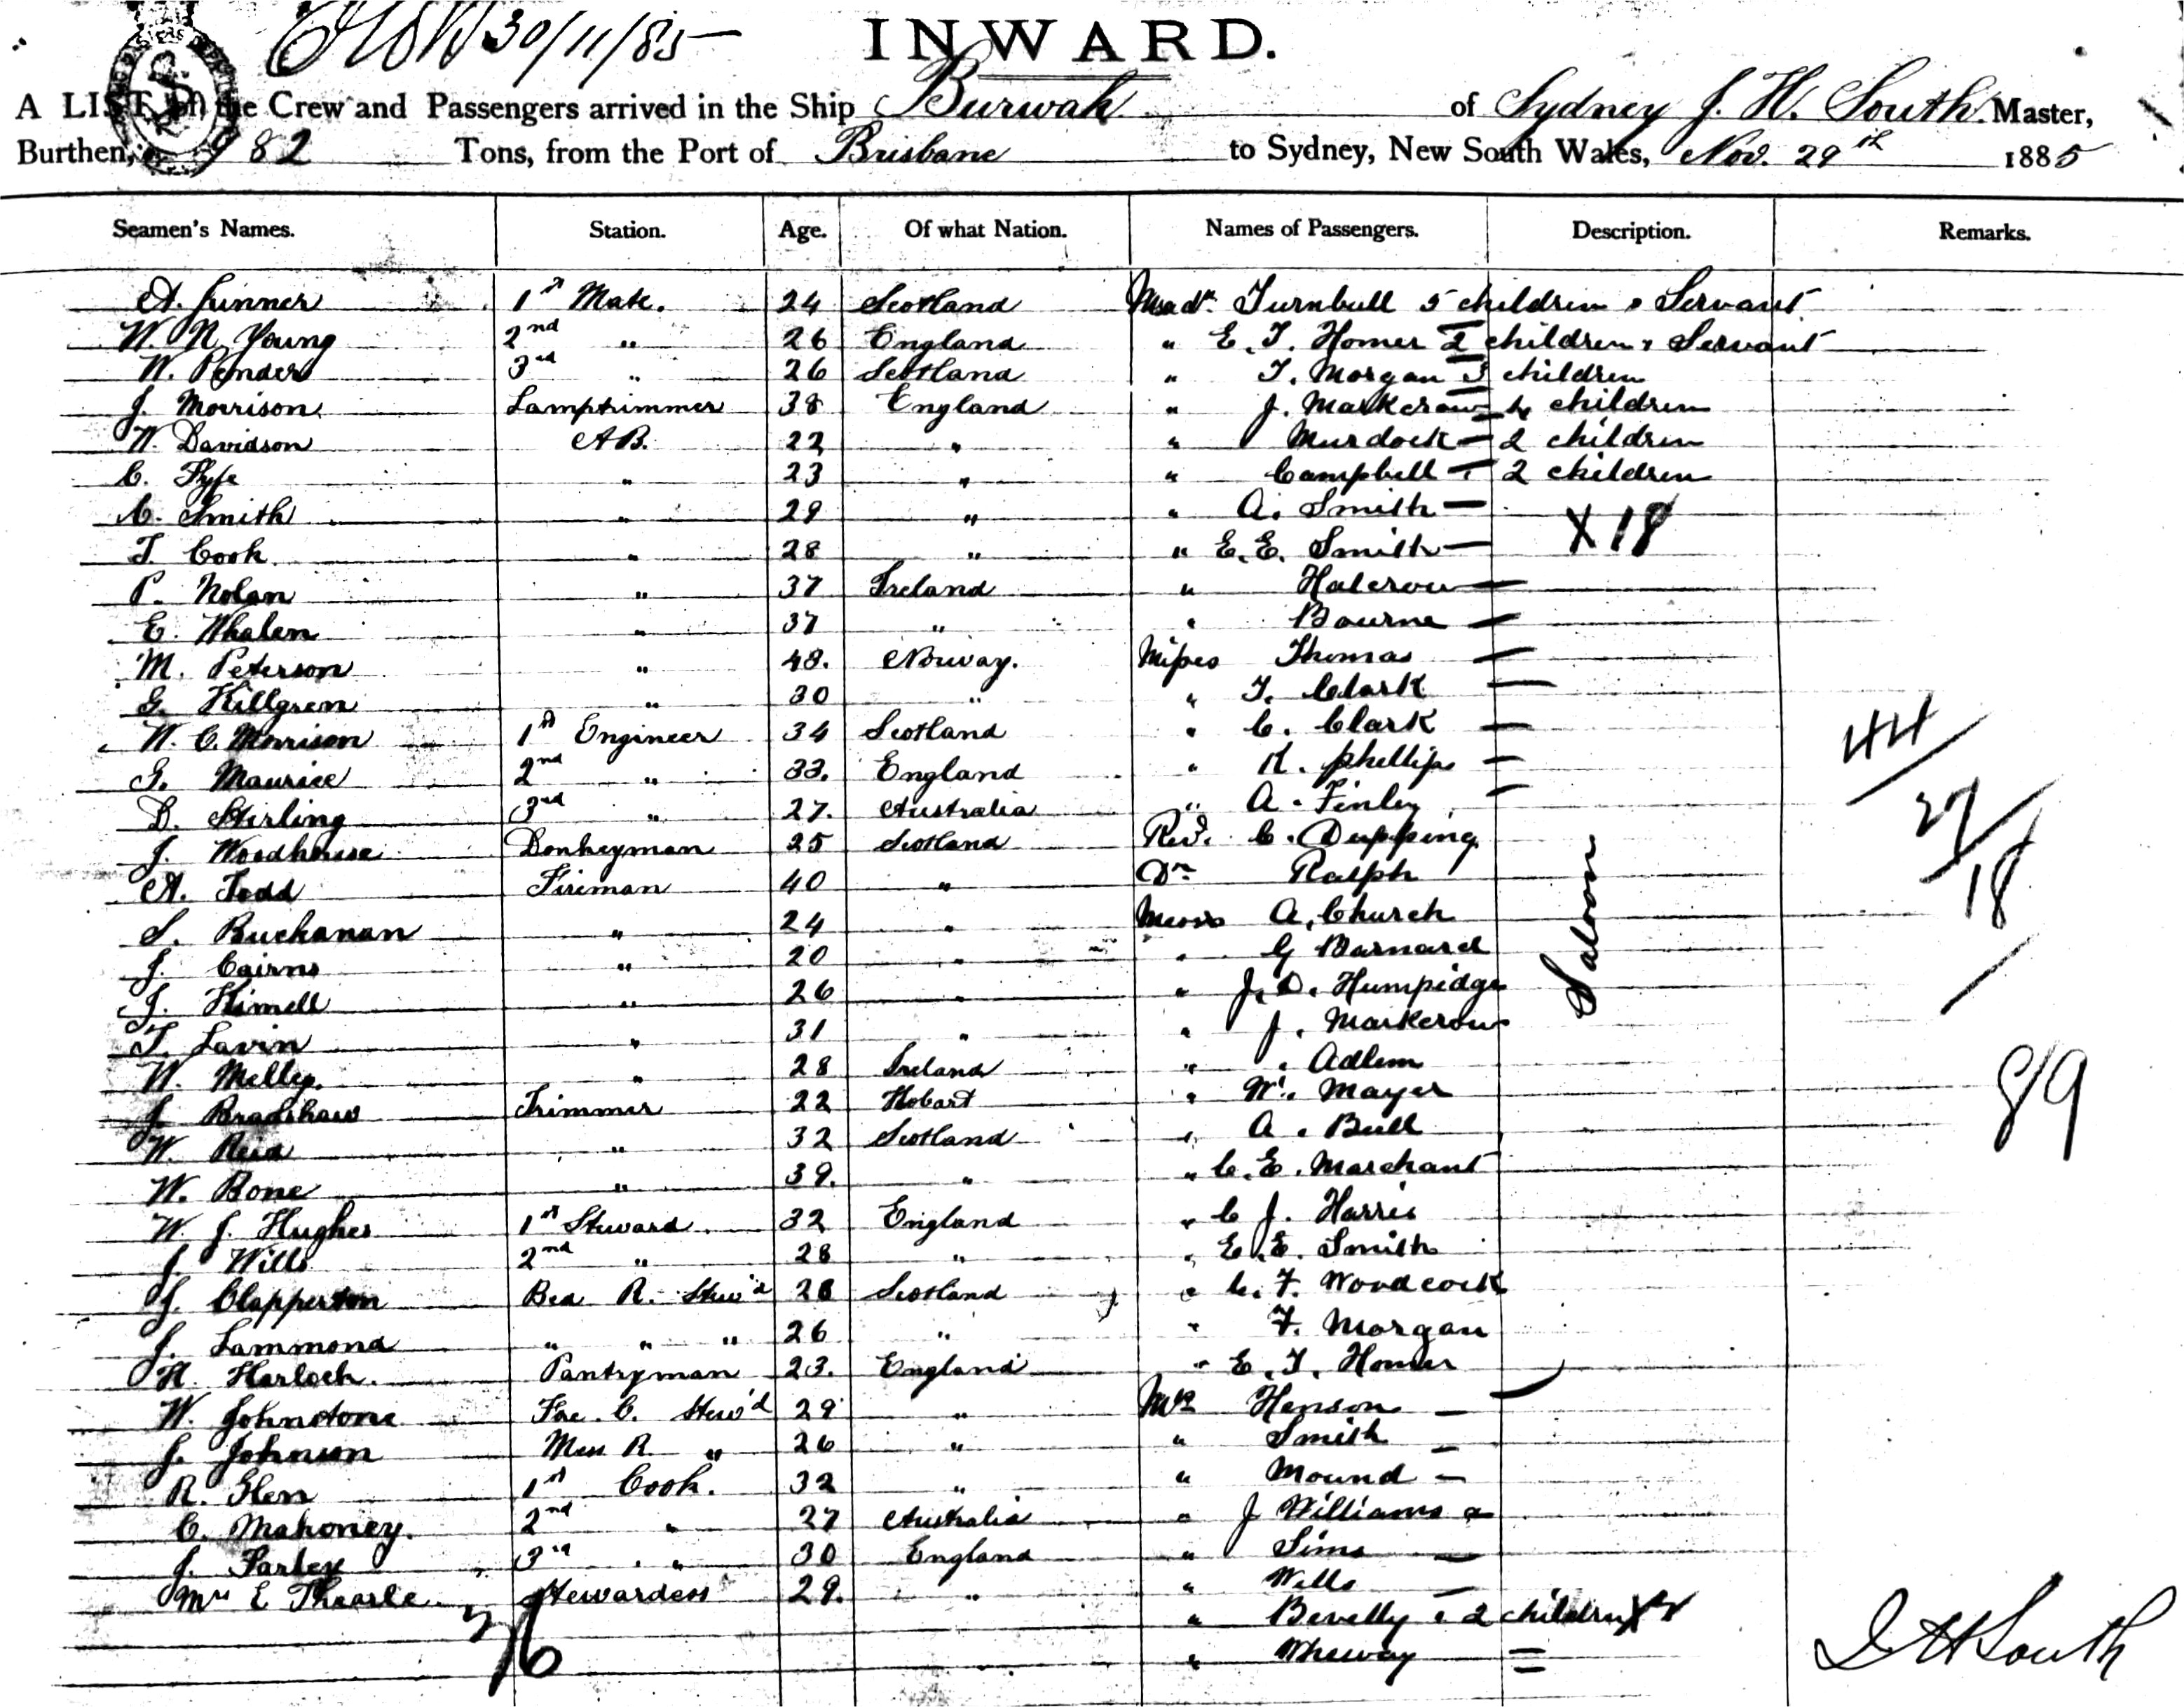 30/11/85
INWARD.
A LIST of the Crew and Passengers arrived in the Ship Burwah of Sydney J. H. South Master,
Burthen, 982 Tons, from the Port of Brisbane to Sydney, New South Wales, Nov. 29th 1885
Seamen's Names. Station. Age. Of what Nation. Names of Passengers. Description. Remarks.
A. 1st Mate. 24 Scotland Turnbull 5 children & Servant
W. N. Young 2nd " 26 England " E. T. Homer 2 children & Servant
W. Pender 3rd " 26 Scotland " T. Morgan 3 children
J. Morrison Lamptrimmer 38 England " J. Markcrow 4 children
W. Davidson AB. 22 " " Murdock — 2 children
C. Fyfe " 23 " " Campbell — 2 children
C. Smith " 29 " " A. Smith —
T. Cook " 28 " " E. E. Smith — X 18
P. Nolan " 37 Ireland " Halcrow —
E. Whalen " 37 " " Bourne —
M. Peterson " 48. Norway. Misses Thomas —
G. Killgren " 30 " " T. Clark —
W. C. Morrison 1st Engineer 34 Scotland " C. Clark — 44
G. Maurice 2nd " 33. England " K. Phillips —
D. Stirling 3rd " 27. Australia " A. Finley — 27
J. Woodhouse Donkeyman 25 Scotland Revd. C. Dupping
A. Todd Fireman 40 " Dr Ralph Saloon 18
S. Buchanan " 24 " Messrs A. Church
J. Cairns " 20 " " G Barnard
J. Kimell " 26 " " J. D. Humpidge
T. Lavin " 31 " " J. Markcrow
W. " 28 Ireland " Adlem 89
J. Bradshaw Trimmer 22 Hobart " W. Mayer
W. Reid " 32 Scotland " A. Bull
W. Bone " 39. " " C. E. Marchant
W. J. Hughes 1st Steward 32 England " C J. Harris
J. Wills 2nd " 28 " " E. E. Smith
J. Clapperton Bed R. Stew'd 28 Scotland " C. F. Woodcock
J. Lammond " " " 26 " " F. Morgan
H. Harloch. Pantryman 23. England " E. T. Homer
W. Johnstone Fore. C. Stew'd 29 " Mr Henson —
J. Johnson Mess R. " 26 " " Smith —
R. Glen 1st Cook. 32 " " Mound —
C. Mahoney. 2nd " 27 Australia " J Williams
J. Farley 3rd " 30 England " Sims —
Mrs E Thearle. Stewardess 29. " " Wills —
36 " Bevelly & 2 children
" Wheway =
J H South